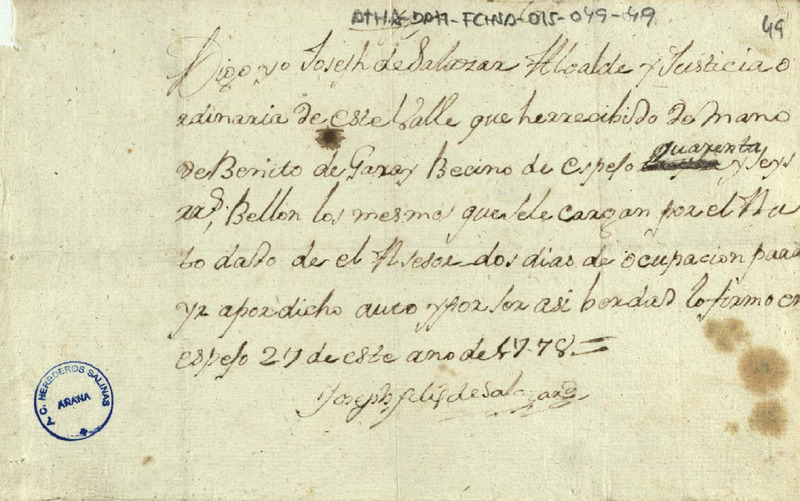 ATHA-DAH-FCHNA-015-049-49
49
Digo yo Joseph de Salazar Alcalde y Justicia o
rdinaria de este Valle que herrecibido de mano
de Benito de Garay Becino de espejo quarenta y seys
rrs, Bellon los mesmos que sele cargan por el Au
to dado de el Asesor dos dias de ocupacion para
yr apor dicho auto y por ser asi berdad lo firmo en
espejo 27 de este ano de 1778
Joseph felis de Salazar
A. C. HEREDEROS SALINAS
AÑANA